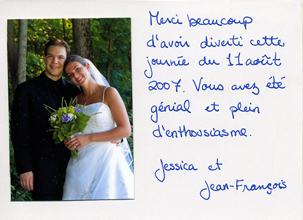 Merci beaucoup
d'avoir diverti cette
journée du 11 août
2007. Vous avez été
génial et plein
d'enthousiasme.
Jessica et
Jean-François